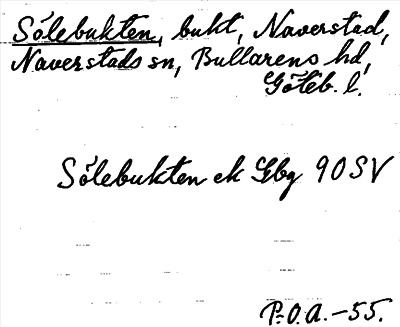 Sólebukten, bukt, Naverstad,
Naverstads sn, Bullarens hd,
Göteb. l.
Sólebukten ek Gbg 90SV
P.O.A.-55.